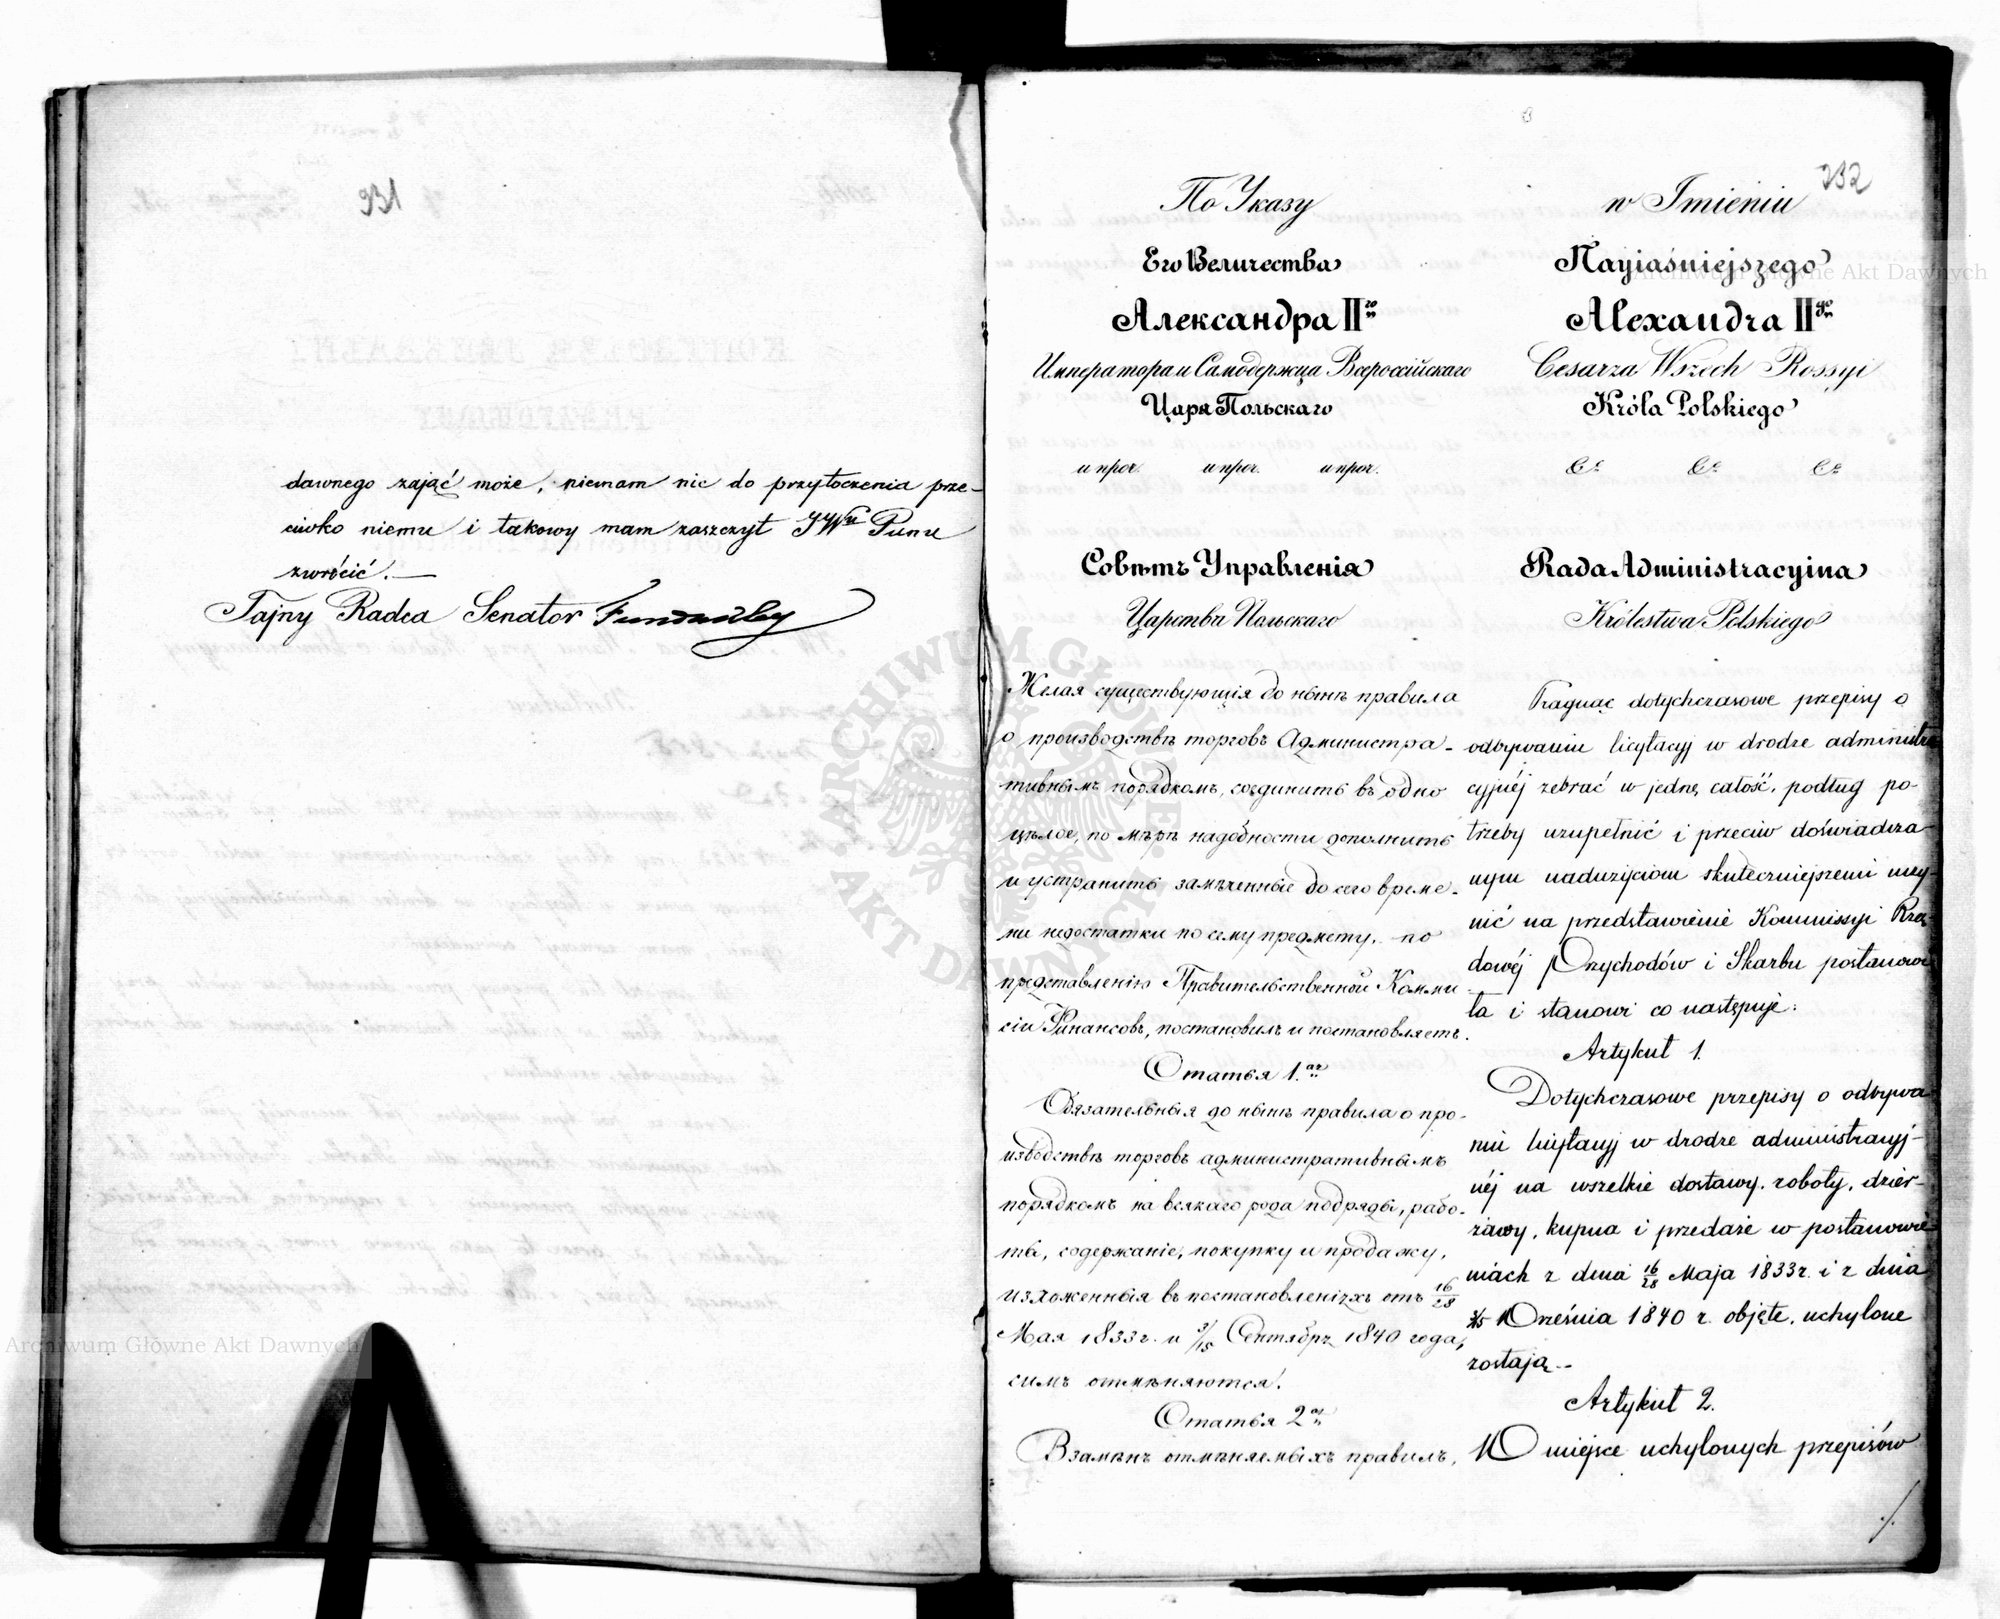 931
dawnego zająć może, niemam nic do przytoczenia prze-
ciwko niemu i takowy mam zaszczyt JWu Panu
zwrócić. —
Tajny Radca Senator
932
По Указу
Его Величества
Александра IIго
Императора и Самодержца Всероссійскаго
Царя Польскаго
и проч. и проч. и проч.
Совѣтъ Управленія
Царства Польскаго
Желая существующія до нынѣ правила
о производствѣ торговъ Администра-
тивнымъ порядкомъ, соединить въ одно
цѣлое, по мѣрѣ надобности дополнить
и устранить замѣченные до сего време-
ни недостатки по сему предмету, по
представленію Правительственной Комми
сіи Финансовъ, постановилъ и постановляетъ.
Статья 1.ая
Обязательныя до нынѣ правила о про-
изводствѣ торговъ административнымъ
порядкомъ на всякаго рода подряды, рабо-
ты, содержаніе, покупку и продажу,
изложенныя въ постановленіяхъ отъ 16/28
Мая 1833 г. и 3/15 Сентября 1840 года,
симъ отмѣняются.
Статья 2ая
Взамѣнъ отмѣняемыхъ правилъ,
w Imieniu
Nayiaśniejszego
Alexandra IIgo
Cesarza Wszech Rossyi
Króla Polskiego
&c &c &c
Rada Administracyina
Królestwa Polskiego
Pragnąc dotychczasowe przepisy o
odbywaniu licytacyj w drodze administra
cyjnéj zebrać w jednę całość, podług po-
trzeby uzupełnić i przeciw doświadcza-
nym nadużyciom skuteczniejszemi uczy-
nić na przedstawienie Kommissyi Rzą-
dowéj Przychodów i Skarbu postanowi
ła i stanowi co następuje:
Artykuł 1.
Dotychczasowe przepisy o odbywa-
niu licytacyj w drodze administracyj-
néj na wszelkie dostawy, roboty, dzier-
żawy, kupna i przedaże w postanowie-
niach z dnia 16/28 Maja 1833 r. i z dnia
3/15 Września 1840 r. objęte, uchylone
zostają.-
Artykuł 2.
W miejsce uchylonych przepisów
./.
Archiwum Główne Akt Dawnych
Archiwum Główne Akt Dawnych
ARCHIWUM GŁÓWNE AKT DAWNYCH